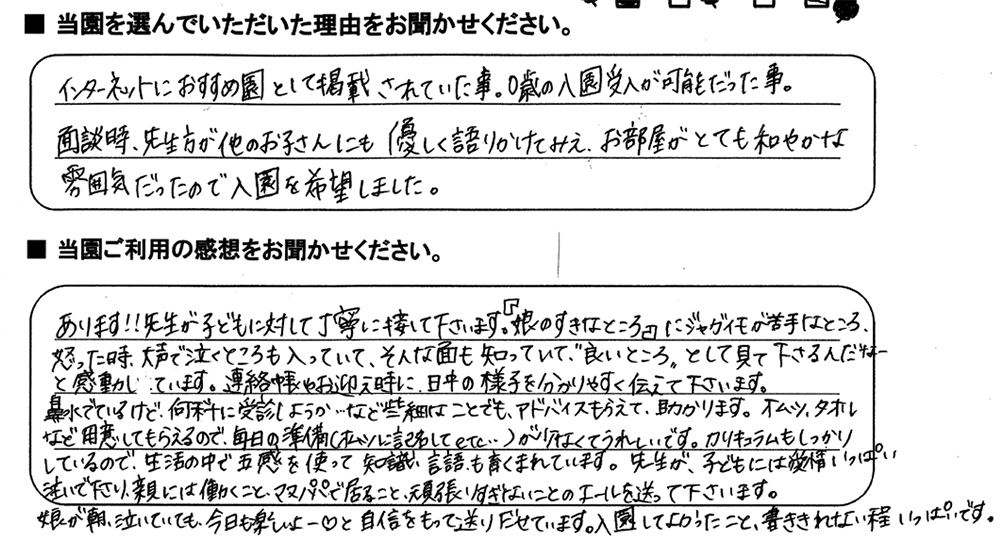 ■ 当園を選んでいただいた理由をお聞かせください。
インターネットにおすすめ園として掲載されていた事。0歳の入園受入が可能だった事。
面談時、先生方が他のお子さんにも優しく語りかけてみえ、お部屋がとても和やかな
雰囲気だったので入園を希望しました。
■ 当園ご利用の感想をお聞かせください。
あります!!先生が子どもに対して丁寧に接して下さいます。『娘のすきなところ』にジャガイモが苦手なところ、
怒った時、大声で泣くところも入っていて、そんな面も知っていて、"良いところ"として見て下さるんだなー
と感動しています。連絡帳やお迎え時に、日中の様子を分かりやすく伝えて下さいます。
鼻水でているけど、何科に受診しようか…など些細なことでも、アドバイスもらえて、助かります。オムツ、タオル
など用意してもらえるので、毎日の準備(オムツに記名してetc…)が少なくてうれしいです。カリキュラムもしっかり
しているので、生活の中で五感を使って知識、言語も育くまれています。先生が、子どもには愛情いっぱい
注いで下さり、親には働くこと、ママパパで居ること、頑張りすぎないことのエールを送って下さいます。
娘が朝、泣いていても、今日も楽しいよー♡と自信をもって送りだせています。入園してよかったこと、書ききれない程いっぱいです。